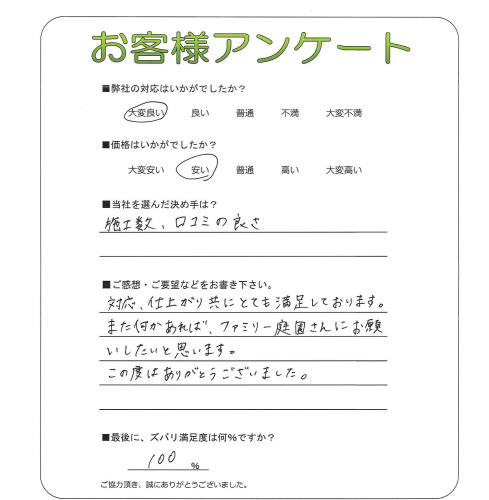 お客様アンケート
■弊社の対応はいかがでしたか？
大変良い 良い 普通 不満 大変不満
■価格はいかがでしたか？
大変安い 安い 普通 高い 大変高い
■当社を選んだ決め手は？
施工数、口コミの良さ
■ご感想・ご要望などをお書き下さい。
対応、仕上がり共にとても満足しております。
また何かあれば、ファミリー庭園さんにお願
いしたいと思います。
この度はありがとうございました。
■最後に、ズバリ満足度は何%ですか？
100 %
ご協力頂き、誠にありがとうございました。